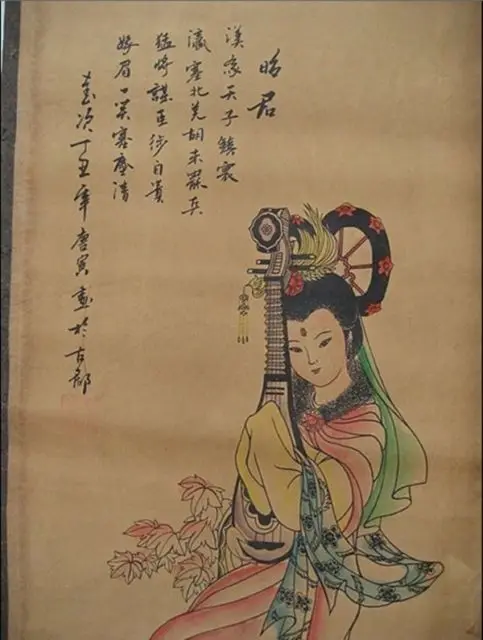 昭君
漢家天子鎮寰
瀛塞北羌胡未罷兵
猛將謀臣徒自貴
蛾眉一笑塞塵清
歲次丁丑年唐寅畫於古